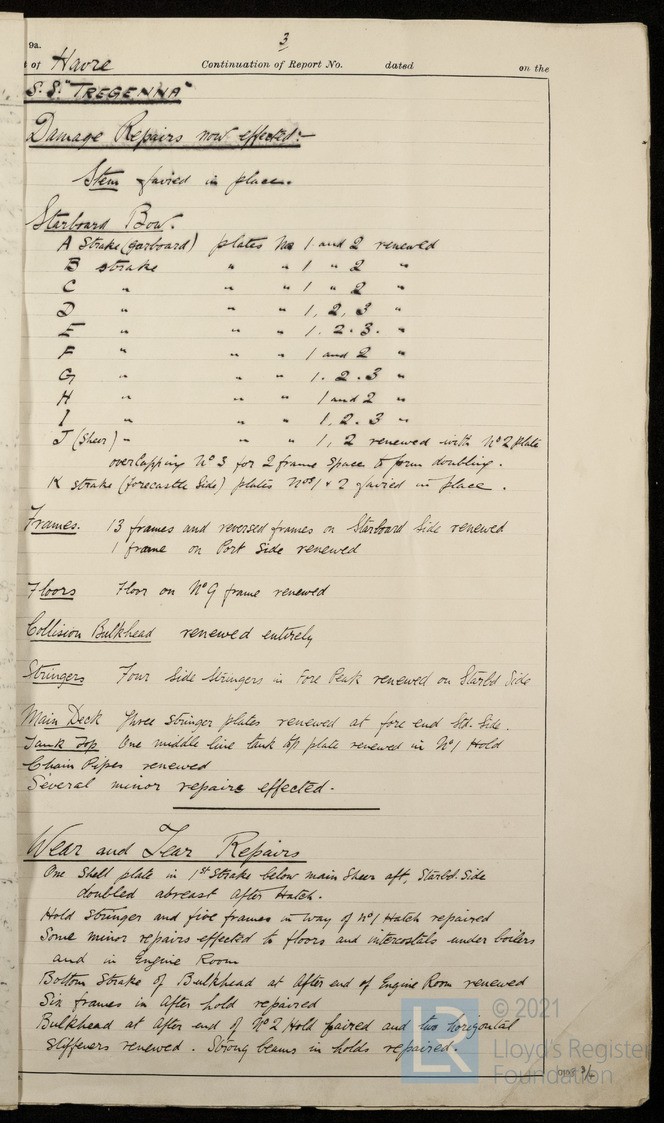 9a.
3
t of Havre Continuation of Report No. dated on the
S.S. "TREGENNA"
Damage Repairs now effected:-
Stem faired in place.
Starboard Bow.
A Strake (garboard) plates No 1 and 2 renewed
B strake " " 1 " 2 "
C " " " 1 " 2 "
D " " " 1, 2, 3 "
E " " " 1. 2. 3. "
F " " " 1 and 2 "
G " " " 1. 2. 3 "
H " " " 1 and 2 "
I " " " 1, 2. 3 "
J (Sheer) " " " 1, 2 renewed with No 2 plate
overlapping No 3 for 2 frame space to form doubling.
K strake (forecastle side) plates Nos 1 & 2 faired in place.
Frames. 13 frames and reversed frames on Starboard Side renewed
1 frame on Port Side renewed
Floors Floor on No 9 frame renewed
Collision Bulkhead renewed entirely
Stringers Four side stringers in Fore Peak renewed on Starbd Side
Main Deck Three stringer plates renewed at fore end Std. Side.
Tank Top One middle line tank top plate renewed in No 1 Hold
Chain Pipes renewed
Several minor repairs effected.
Wear and Tear Repairs
One Shell plate in 1st Strake below main Sheer aft, Starbd. Side
doubled abreast after Hatch.
Hold Stringer and five frames in way of No 1 Hatch repaired
Some minor repairs effected to floors and intercostals under boilers
and in Engine Room
Bottom Strake of Bulkhead at After end of Engine Room renewed
Six frames in After hold repaired
Bulkhead at After end of No 2 Hold faired and two horizontal
stiffeners renewed. Strong beams in holds repaired.
LR © 2021
Lloyd's Register
Foundation